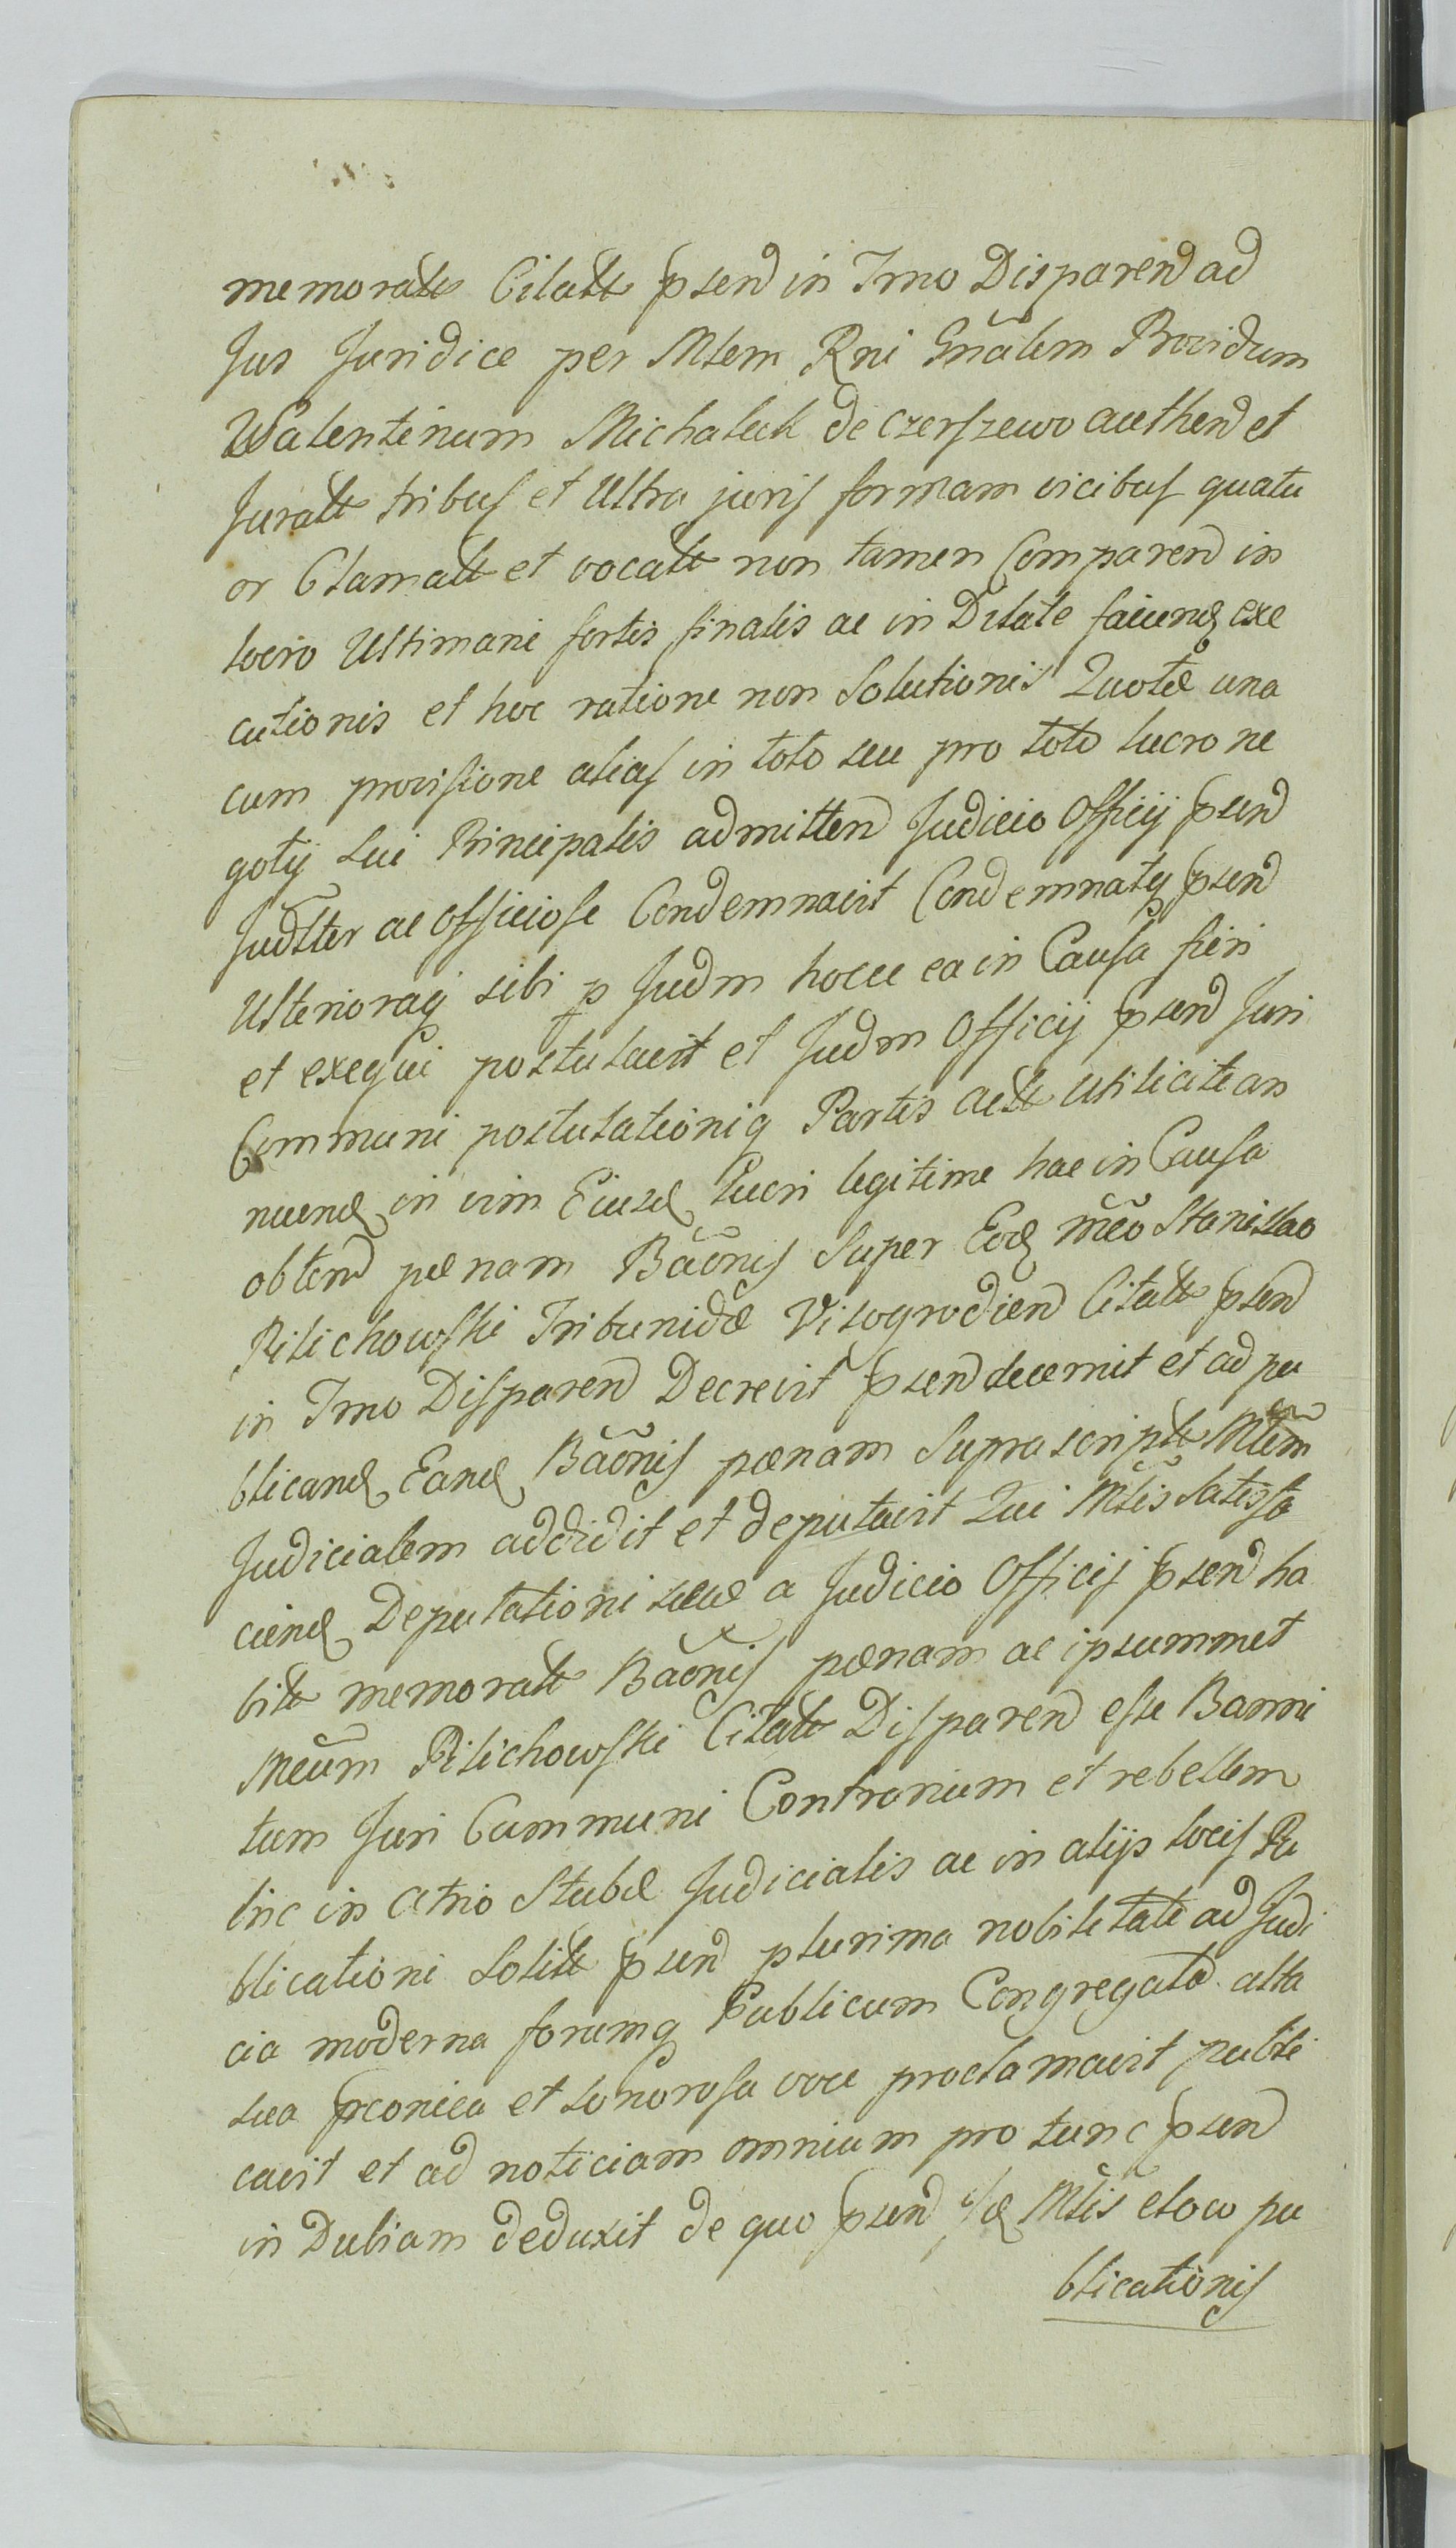 memoratt Citatt psend in Tmo Disparend ad
Jus Juridice per Mtem Rni Gnãlem Providum
Walentinum Michaluk de Czerszewo authend et
Juratt tribus et Ultra juris formam vicibus quatu
or Clamatt et vocatt non tamen Comparend in
lucro Ultimarie sortis finalis ac in Dilate faciend exe
cutionis et hoc ratione non Solutionis Quotæ una
cum provisione alias in toto seu pro toto lucro ne
gotij sui Principalis admitten Judicio Officij psend
Judtter ac officiose Condemnavit Condemnatq psend
Ulterioraq sibi p Judm hocce ea in Causa fieri
et exequi postulavit et Judm Officij psend Juri
Communi postulationiq Partis actt utilicitean
nuend in vim Eiusd lucri legitime hac in Causa
obtend pænam Bãonis Super Eod mẽo Stanislao
Pilichowski Tribunidæ Visogrodien Citatt psend
in Tmo Disparend Decrevit psend decernit et ad pu
blicand Eand Bãonis pænam Suprascriptt Mtem
Judicialem addidit et deputavit Qui Mtis Satisfa
ciend Deputationi suæ a Judicio Officij psend ha
bitt memoratt Bãonis pænam ac ipsummet
Meũm Pilichowski Citatt Disparend esse Banni
tum Juri Communi Contrarium et rebellem
hic in Atrio Stubæ Judicialis ac in alijs locis Pu
blicationi Solitt psend plurima nobilitate ad Judi
cia moderna forumq Publicum Congregata alta
sua pconica et sonorosa voce proclamavit publi
cavit et ad noticiam omnium pro tunc psend
in Dubiam deduxit de quo psend Mtis eloco pu
blicationis